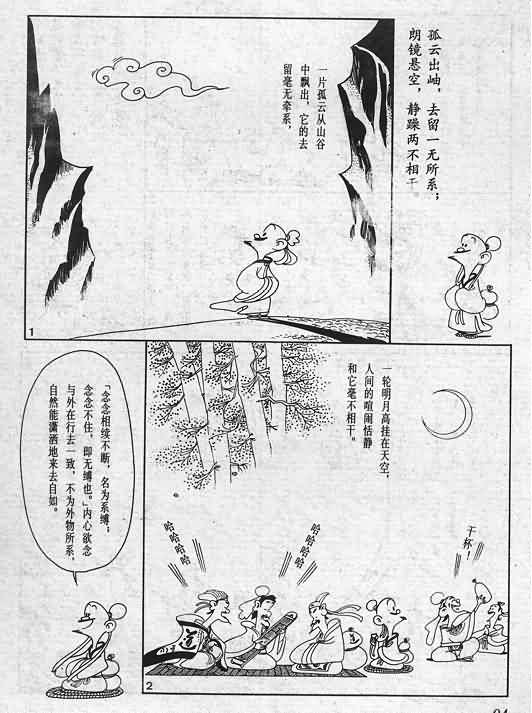 孤云出岫，去留一无所系；
朗镜悬空，静躁两不相干。
一片孤云从山谷
中飘出，它的去
留毫无牵系，
1
一轮明月高挂在天空，
人间的喧闹恬静
和它毫不相干。
干杯！
哈哈哈哈
哈哈哈哈
道
2
「念念相续不断，名为系缚；
念念不住，即无缚也。」内心欲念
与外在行去一致，不为外物所系，
自然能潇洒地来去自如。